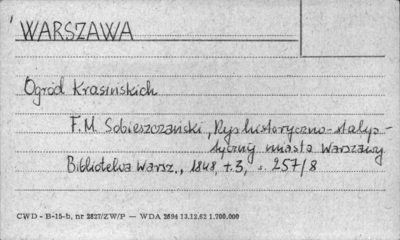 WARSZAWA
Ogród Krasińskich
F.M. Sobieszczański, Rys historyczno-statys-
tyczny miasta Warszawy
Biblioteka Warsz., 1848, t.3, s. 257/8
CWD - B-15-b, nr 2827/ZW/P — WDA 2694 13.12.62 1.700.000